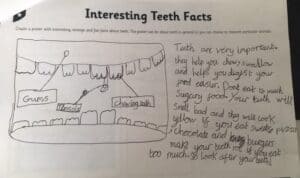 Interesting Teeth Facts
Create a poster with interesting, strange and fun facts about teeth. The poster can be about teeth in general or you can choose to research particular animals.
Teeth are very important
they help you chew, swallow
and helps you digest your
food easier. Dont eat to much
Sugary food. Your teeth will
smell bad and they will look
yellow if you eat sweets pizza
chocolate and burgers
make your teeth rot if you eat
too much. so look after your teeth
Gums
Chewing tooth